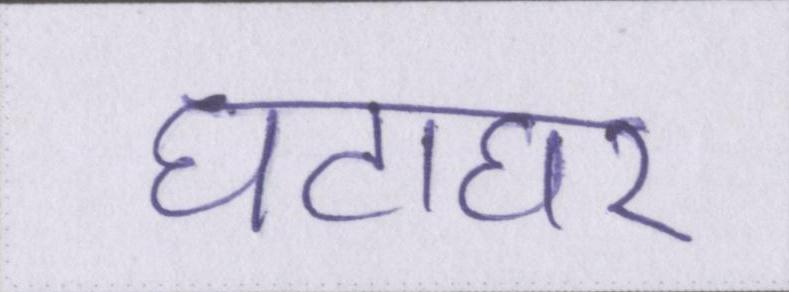 घटाघर